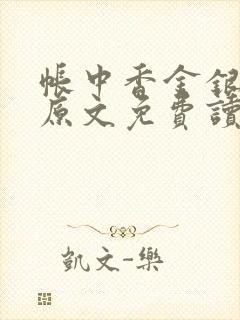 帳中香金銀
原文免費讀
凱文-樂